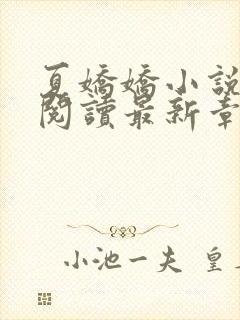 夏嬌嬌小說
閱讀最新章
小池一夫 皇